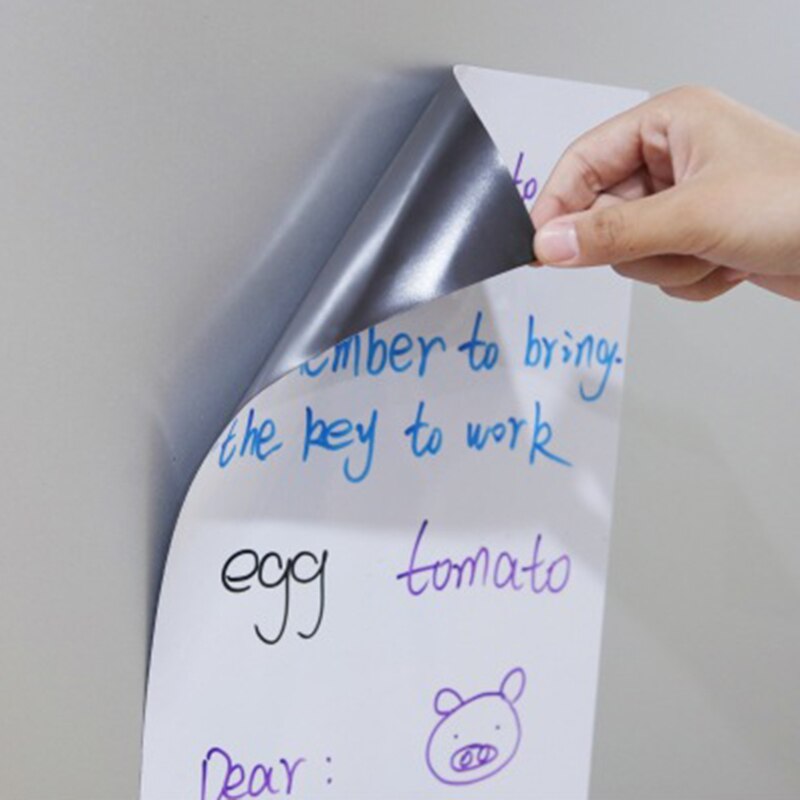 to
ember to bring.
the key to work
egg tomato
Dear :